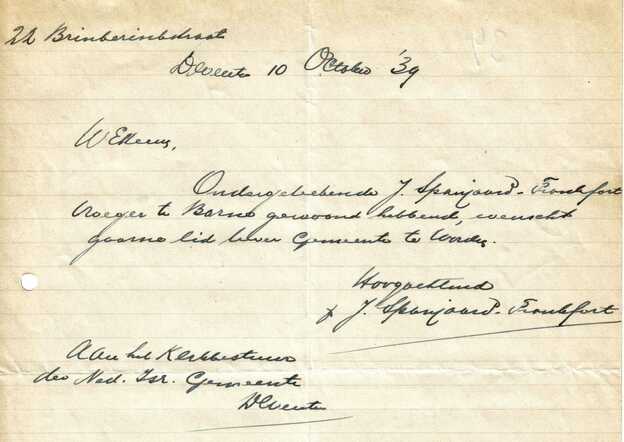 22 Brinkerinkstraat
Deventer 10 October '39
WelEerw,
Ondergeteekende J. Spanjaard-Frankfort
vroeger te Borne gewoond hebbend, wenscht
gaarne lid Uwer Gemeente te worden.
Hoogachtend
J. Spanjaard-Frankfort
Aan het Kerkbestuur
der Ned. Isr. Gemeente
Deventer